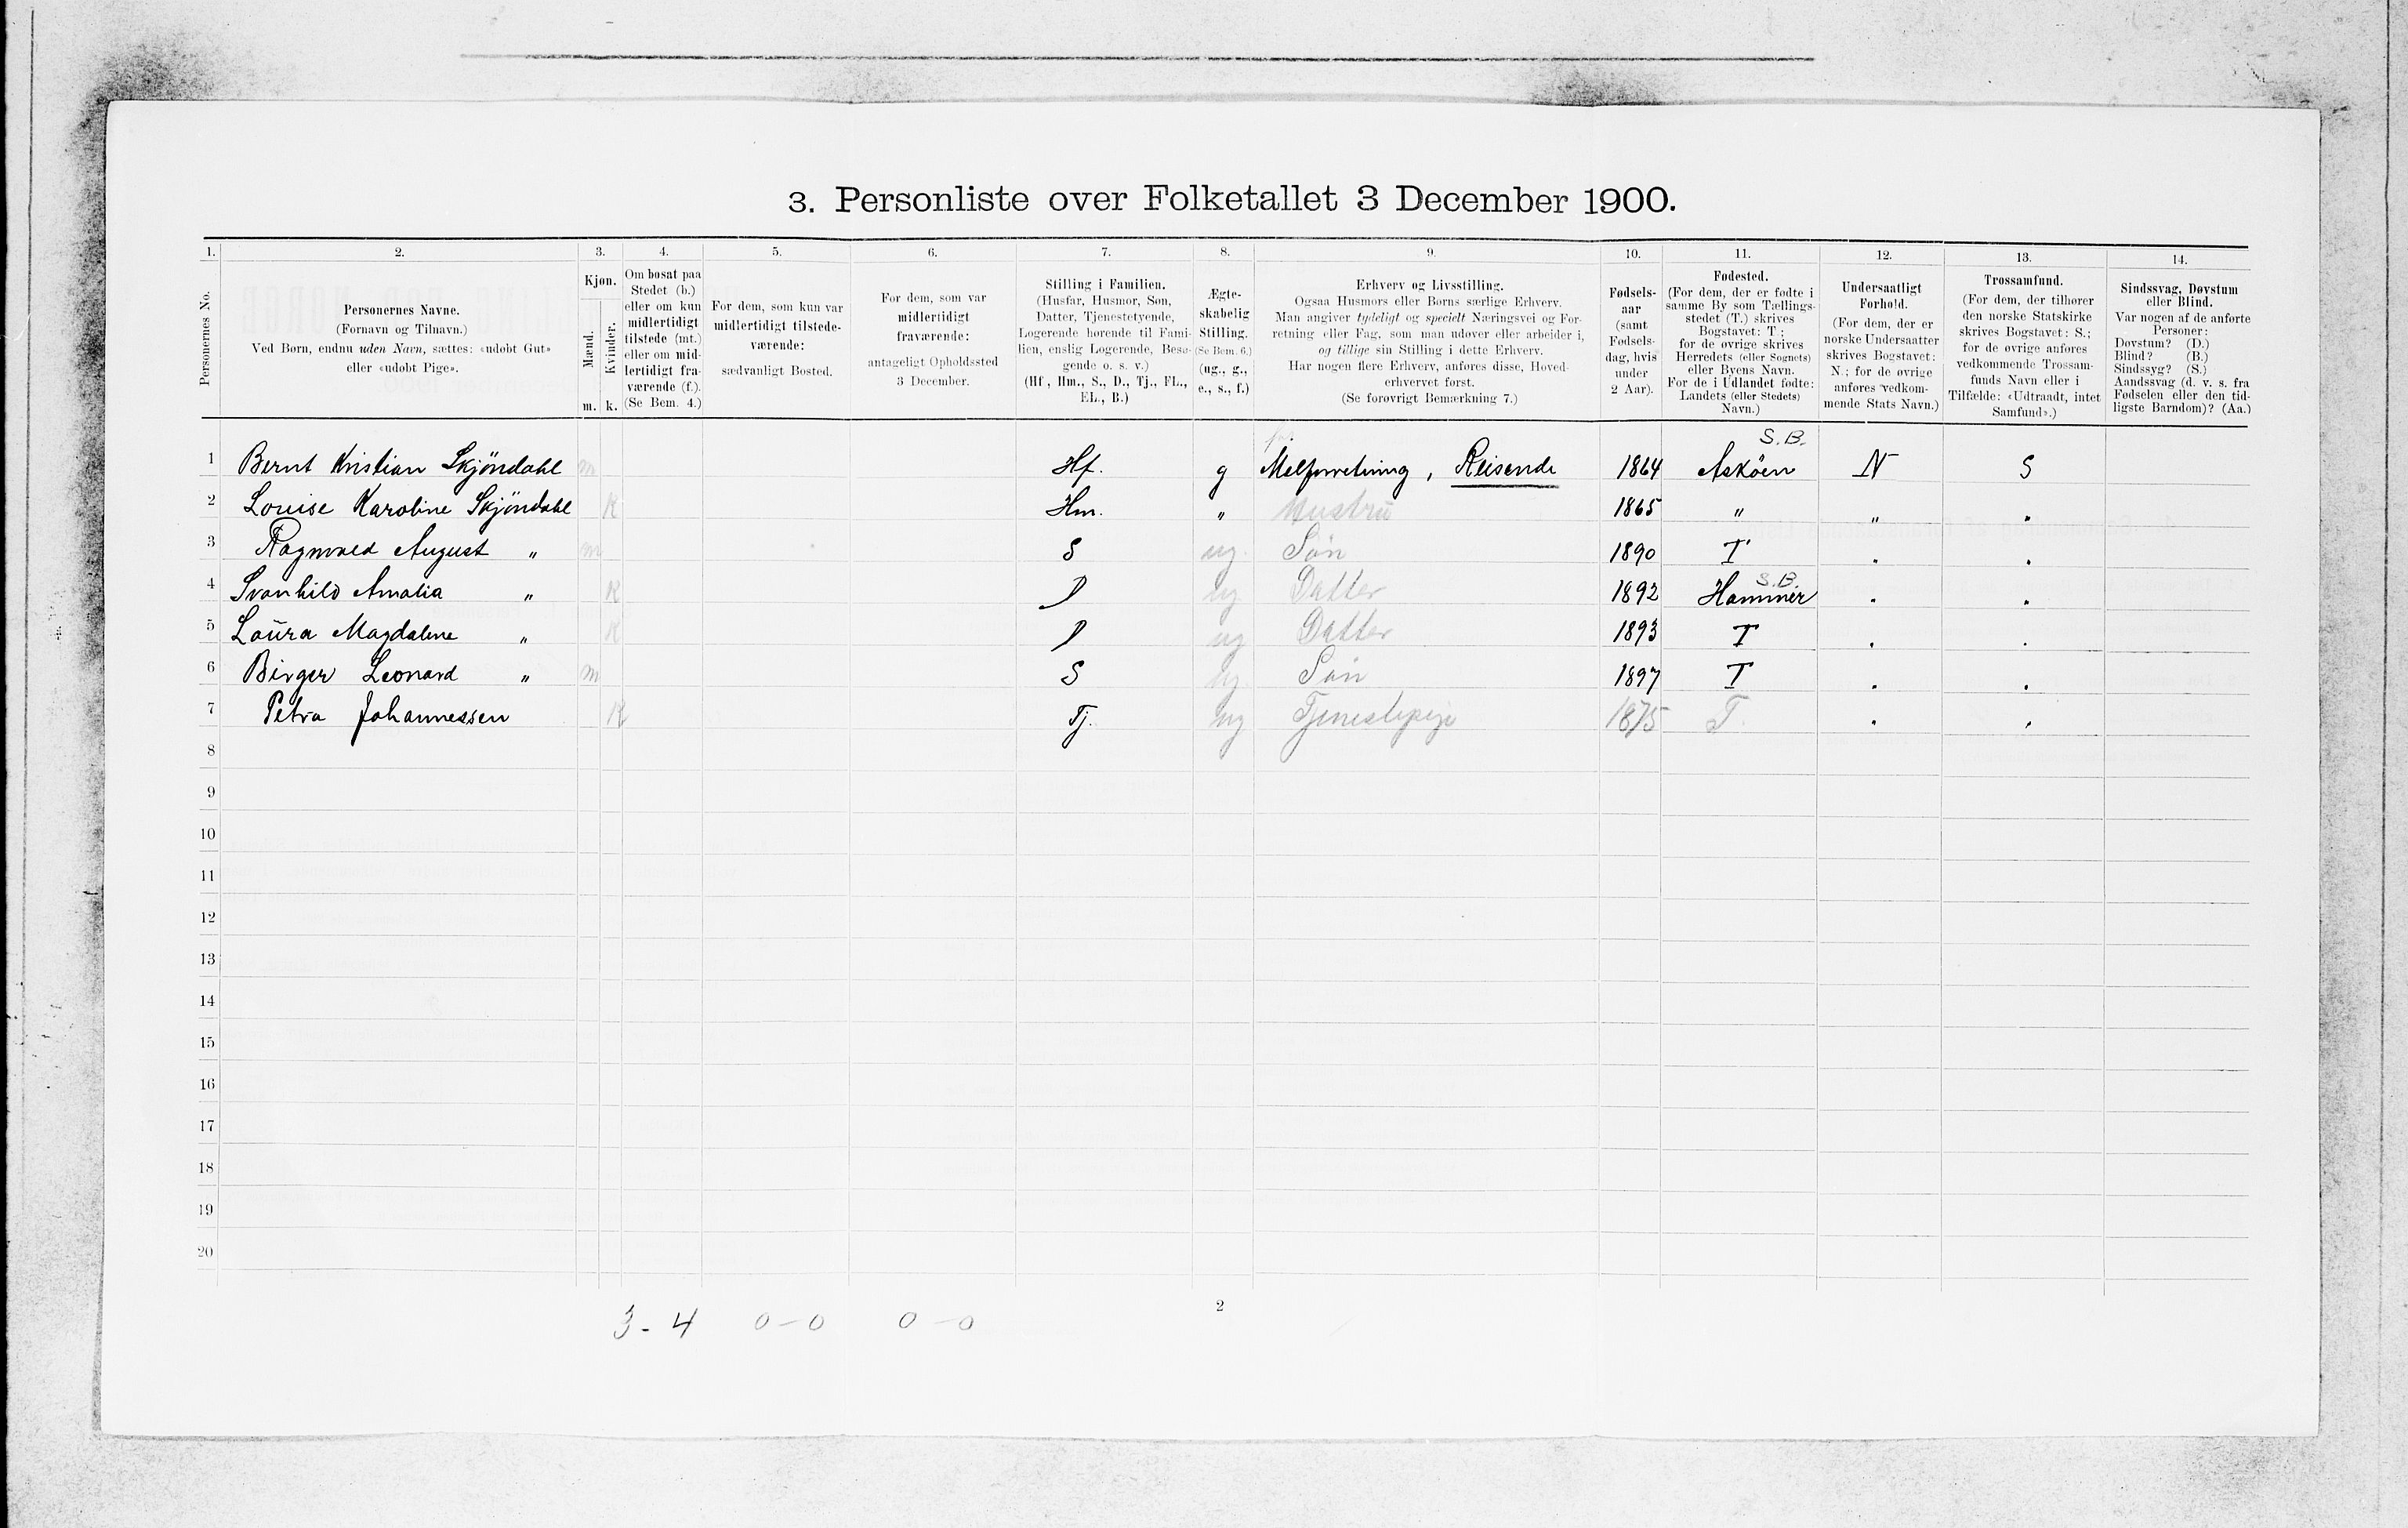 3. Personliste over Folketallet 3 December 1900.
1. 2. 3. 4. 5. 6. 7. 8. 9. 10. 11. 12. 13. 14.
Personernes No.
Personernes Navne.
(Fornavn og Tilnavn.)
Ved Børn, endnu uden Navn, sættes: «udøbt Gut»
eller «udøbt Pige».
Kjøn.
Mænd.
Kvinder.
m. k.
Om bosat paa
Stedet (b.)
eller om kun
midlertidigt
tilstede (mt.)
eller om mid-
lertidigt fra-
værende (f.).
(Se Bem. 4.)
For dem, som kun var
midlertidigt tilstede-
værende:
sædvanligt Bosted.
For dem, som var
midlertidigt
fraværende:
antageligt Opholdssted
3 December.
Stilling i Familien.
(Husfar, Husmor, Søn,
Datter, Tjenestetyende,
Logerende hørende til Fami-
lien, enslig Logerende, Besø-
gende o. s. v.)
(Hf., Hm., S., D., Tj., FL.,
EL., B.)
Ægte-
skabelig
Stilling.
(Se Bem. 6.)
(ug., g.,
e., s., f.)
Erhverv og Livsstilling.
Ogsaa Husmors eller Børns særlige Erhverv.
Man angiver tydeligt og specielt Næringsvei og For-
retning eller Fag, som man udøver eller arbeider i,
og tillige sin Stilling i dette Erhverv.
Har nogen flere Erhverv, anføres disse, Hoved-
erhvervet først.
(Se forøvrigt Bemærkning 7.)
Fødsels-
aar
(samt
Fødsels-
dag, hvis
under
2 Aar).
Fødested.
(For dem, der er fødte i
samme By som Tællings-
stedet (T.) skrives
Bogstavet: T.;
for de øvrige skrives
Herredets (eller Sognets)
eller Byens Navn.
For de i Udlandet fødte:
Landets (eller Stedets)
Navn.)
Undersaatligt
Forhold.
(For dem, der er
norske Undersaatter
skrives Bogstavet:
N.; for de øvrige
anføres vedkom-
mende Stats Navn.)
Trossamfund.
(For dem, der tilhører
den norske Statskirke
skrives Bogstavet: S.;
for de øvrige anføres
vedkommende Trossam-
funds Navn eller i
Tilfælde: «Udtraadt, intet
Samfund».)
Sindssvag, Døvstum
eller Blind.
Var nogen af de anførte
Personer:
Døvstum? (D.)
Blind? (B.)
Sindssyg? (S.)
Aandssvag (d. v. s. fra
Fødselen eller den tid-
ligste Barndom)? (Aa.)
S.B.
1 Bernt Kristian Skjöndahl m Hf. g Melforretning, Reisende 1864 Asköen N S
2 Louise Karoline Skjöndahl K Hm. " Hustru 1865 " " "
3 Ragnvald August " m S ug Sön 1890 T " "
S.B.
4 Svanhild Amalia " K D ug Datter 1892 Hammer " "
5 Laura Magdalene " K D ug Datter 1893 T " "
6 Birger Leonard " m S ug Sön 1897 T " "
7 Petra Johannessen K Tj. ug Tjenestepige 1875 T. " "
8
9
10
11
12
13
14
15
16
17
18
19
20
3 - 4 0 - 0 0 - 0
2